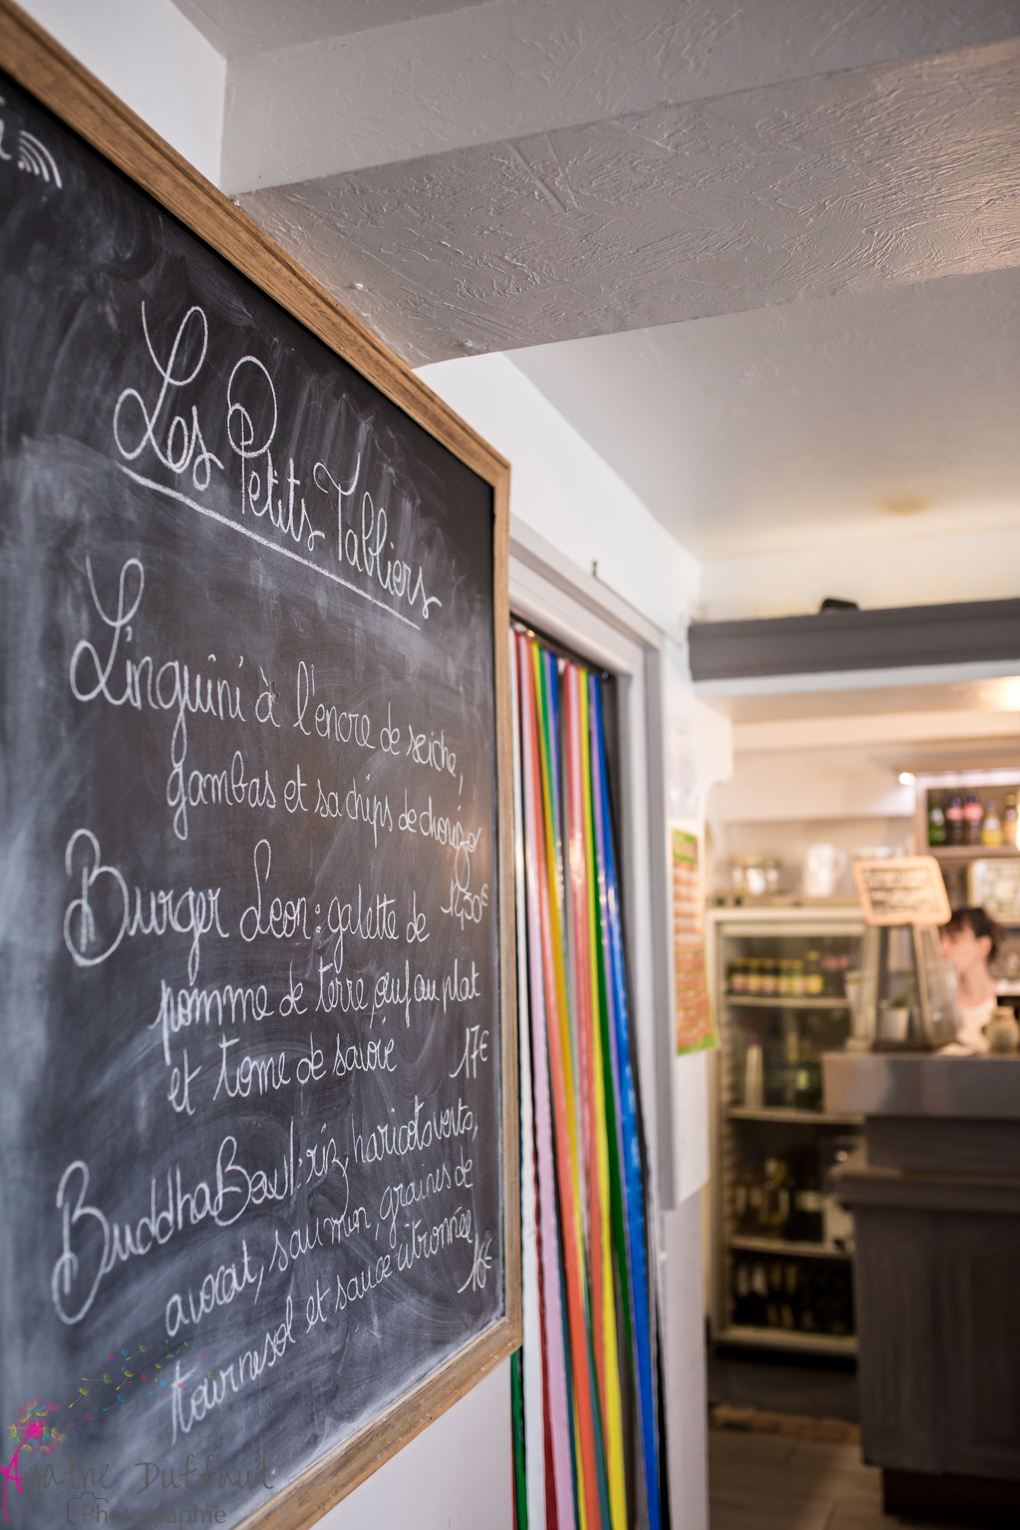 Les Petits Tabliers
Linguini à l'encre de seiche,
gambas et sa chips de chorizo
Burger Leon : galette de
pomme de terre œuf au plat
et tome de savoie 17€
Buddha Bowl : riz, haricots verts,
avocat, saumon, graines de
tournesol et sauce citronnée
16€
Agathe Duffaut
Photographie